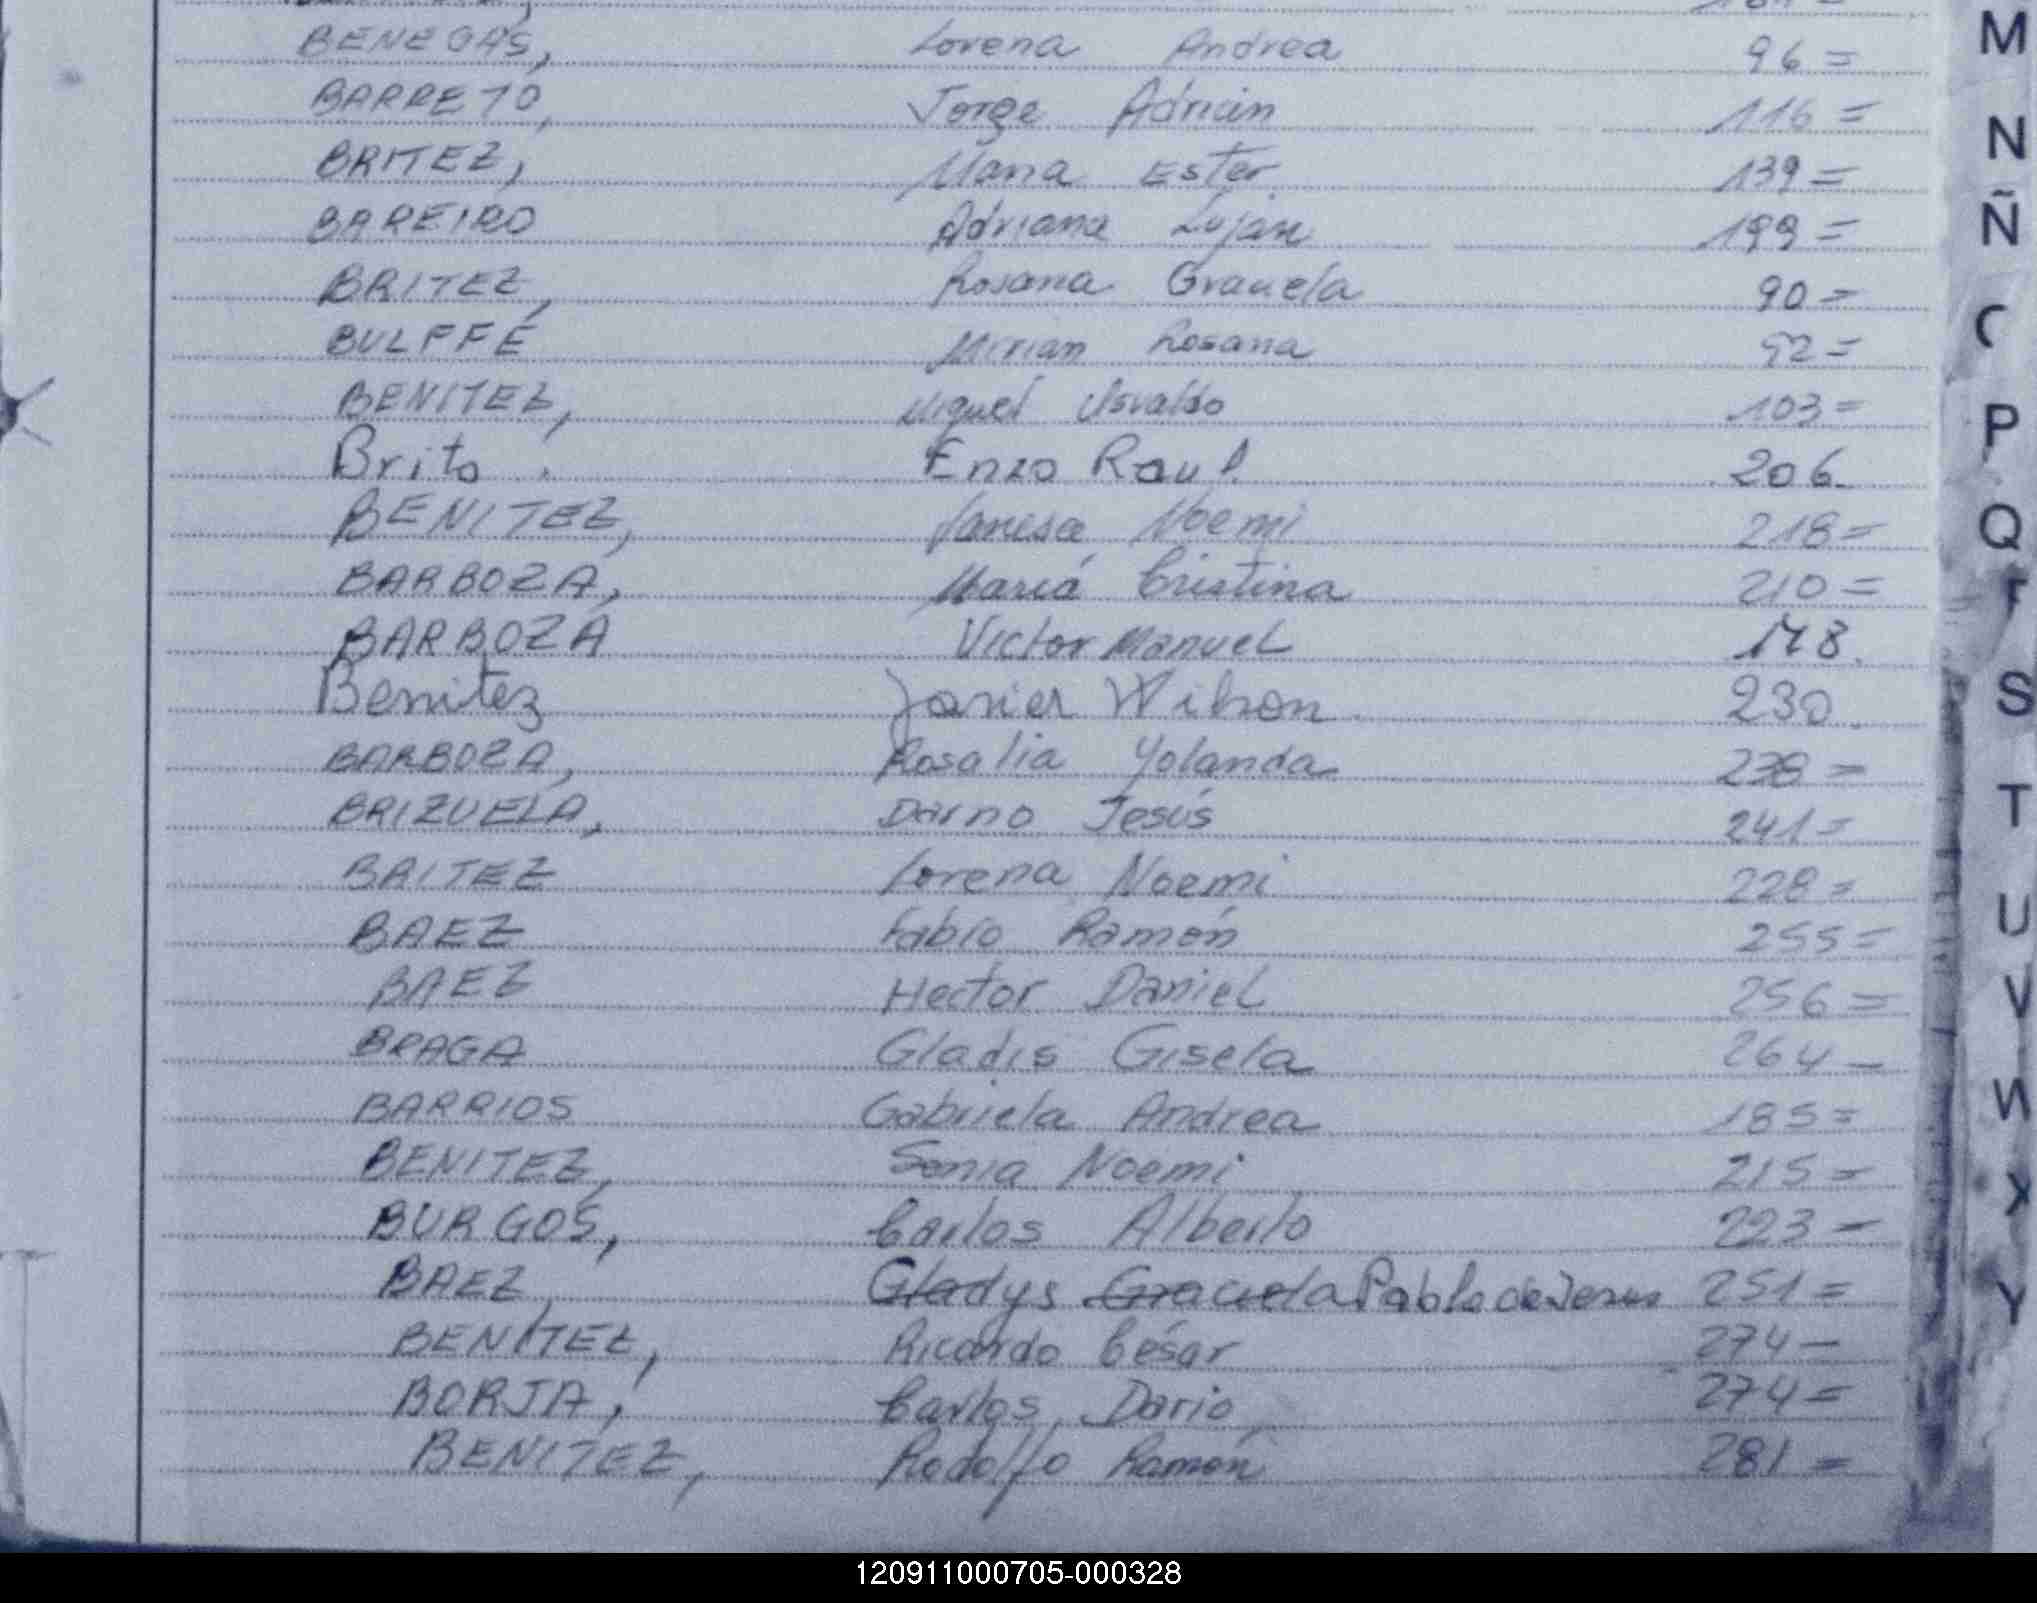 BENEGAS, Lorena Andrea 96=
BARRETO, Jorge Adrián 116=
BRITEZ, Maria Ester 139=
BAREIRO Adriana Luján 199=
BRITEZ, Rosana Graciela 90=
BULFFÉ Mirian Rosana 92=
BENITEZ, Miguel Osvaldo 103=
Brito. Enzo Raul. 206.
BENITEZ, Vanesa Noemi 218=
BARBOZA, María Cristina 210=
BARBOZA Victor Manuel 178.
Benitez Javier Wilson. 230.
BARBOZA, Rosalia Yolanda 238=
BRIZUELA, Darío Jesús 241=
BRITEZ Lorena Noemi 228=
BAEZ Fabio Ramón 255=
BAEZ Hector Daniel 256=
BRAGA Gladis Gisela 264-
BARRIOS Gabriela Andrea 185=
BENITEZ, Sonia Noemi 215=
BURGOS, Carlos Alberto 223=
BAEZ, Gladys Graciela Pablo de Jesus 251=
BENITEZ, Ricardo César 274-
BORJA, Carlos Dario 274=
BENITEZ, Rodolfo Ramón 281=
M
N
Ñ
P
Q
S
T
U
V
W
X
Y
120911000705-000328